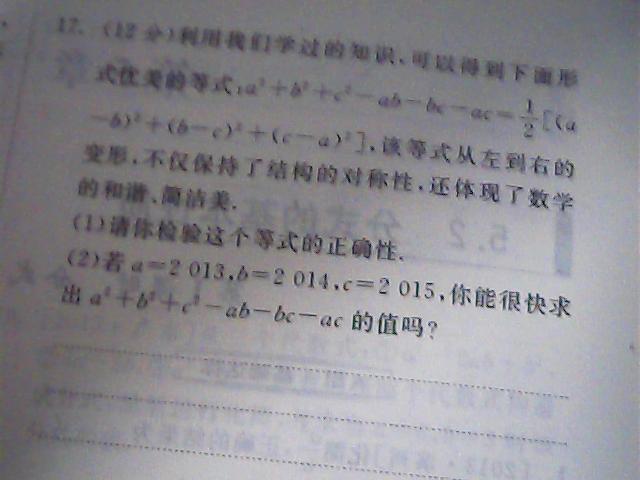 17. (12分)利用我们学过的知识,可以得到下面形
式优美的等式:a²+b²+c²-ab-bc-ac=1/2[(a
-b)²+(b-c)²+(c-a)²],该等式从左到右的
变形,不仅保持了结构的对称性,还体现了数学
的和谐、简洁美.
(1)请你检验这个等式的正确性.
(2)若 a=2 013,b=2 014,c=2 015,你能很快求
出 a²+b²+c²-ab-bc-ac 的值吗?